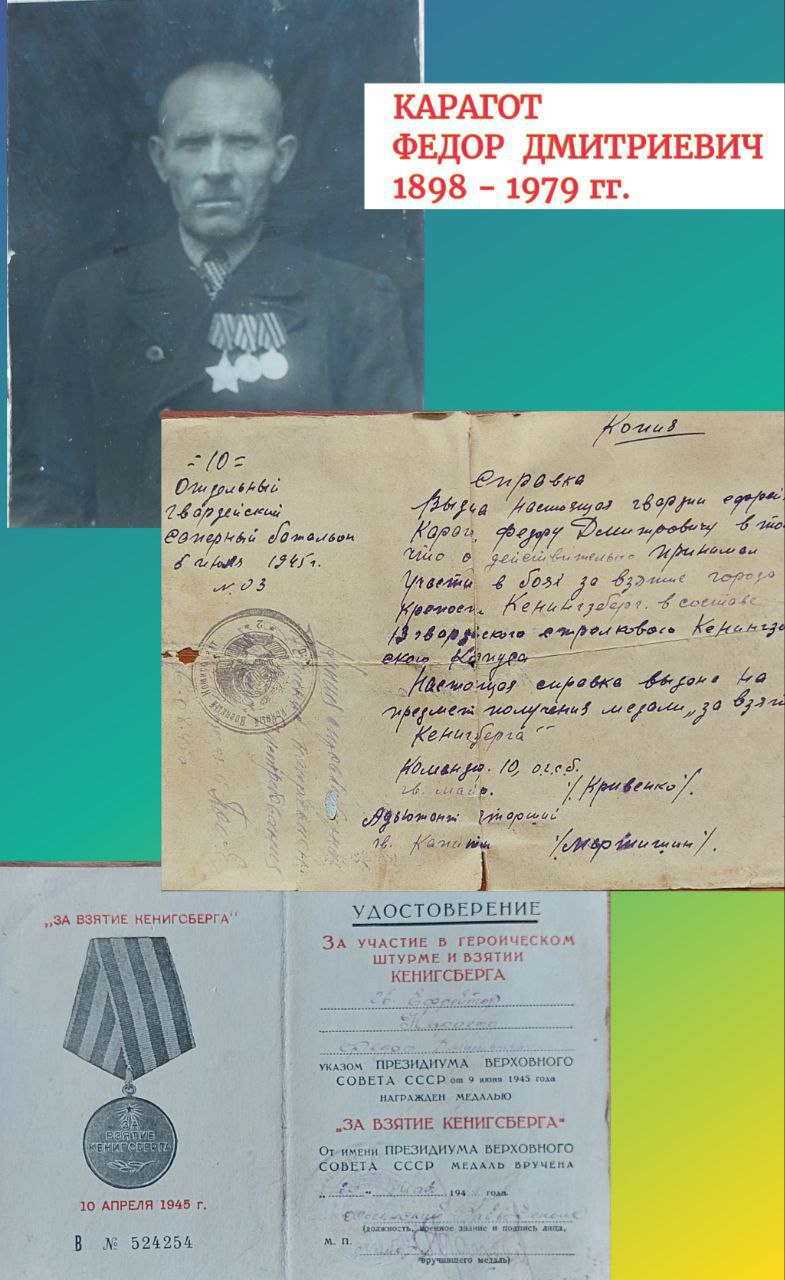 КАРАГОТ
ФЕДОР ДМИТРИЕВИЧ
1898 - 1979 гг.
Копия
=10=
Отдельный
гвардейский
саперный батальон
6 июля 1945г.
N. 03
Справка
Выдна настоящая гвардии ефрей
Караг. Федору Дмитровичу в то
что о действительно принимал
участи в боях за взятие города
крепость Кенингзберг. в составе
13 гвардейского стролкового Кенингз
ского Капуса
Настоящая справка выдана на
предмет получения медали „за взят
Кенигберга"
Командир. 10, о.г.с.б.
гв. майр. /Кривенко/.
Адьютант старший
гв. Капитн /Мартишин/.
„ЗА ВЗЯТИЕ КЕНИГСБЕРГА"
ЗА
ВЗЯТИЕ
КЕНИГСБЕРГА
10 АПРЕЛЯ 1945 г.
В № 524254
УДОСТОВЕРЕНИЕ
ЗА УЧАСТИЕ В ГЕРОИЧЕСКОМ
ШТУРМЕ И ВЗЯТИИ
КЕНИГСБЕРГА
Гв. Ефрейтор
УКАЗОМ ПРЕЗИДИУМА ВЕРХОВНОГО
СОВЕТА СССР от 9 июня 1945 года
НАГРАЖДЕН МЕДАЛЬЮ
„ЗА ВЗЯТИЕ КЕНИГСБЕРГА"
От имени ПРЕЗИДИУМА ВЕРХОВНОГО
СОВЕТА СССР МЕДАЛЬ ВРУЧЕНА
194 года
(должность, военное звание и подпись лица,
М. П.
вручившего медаль)